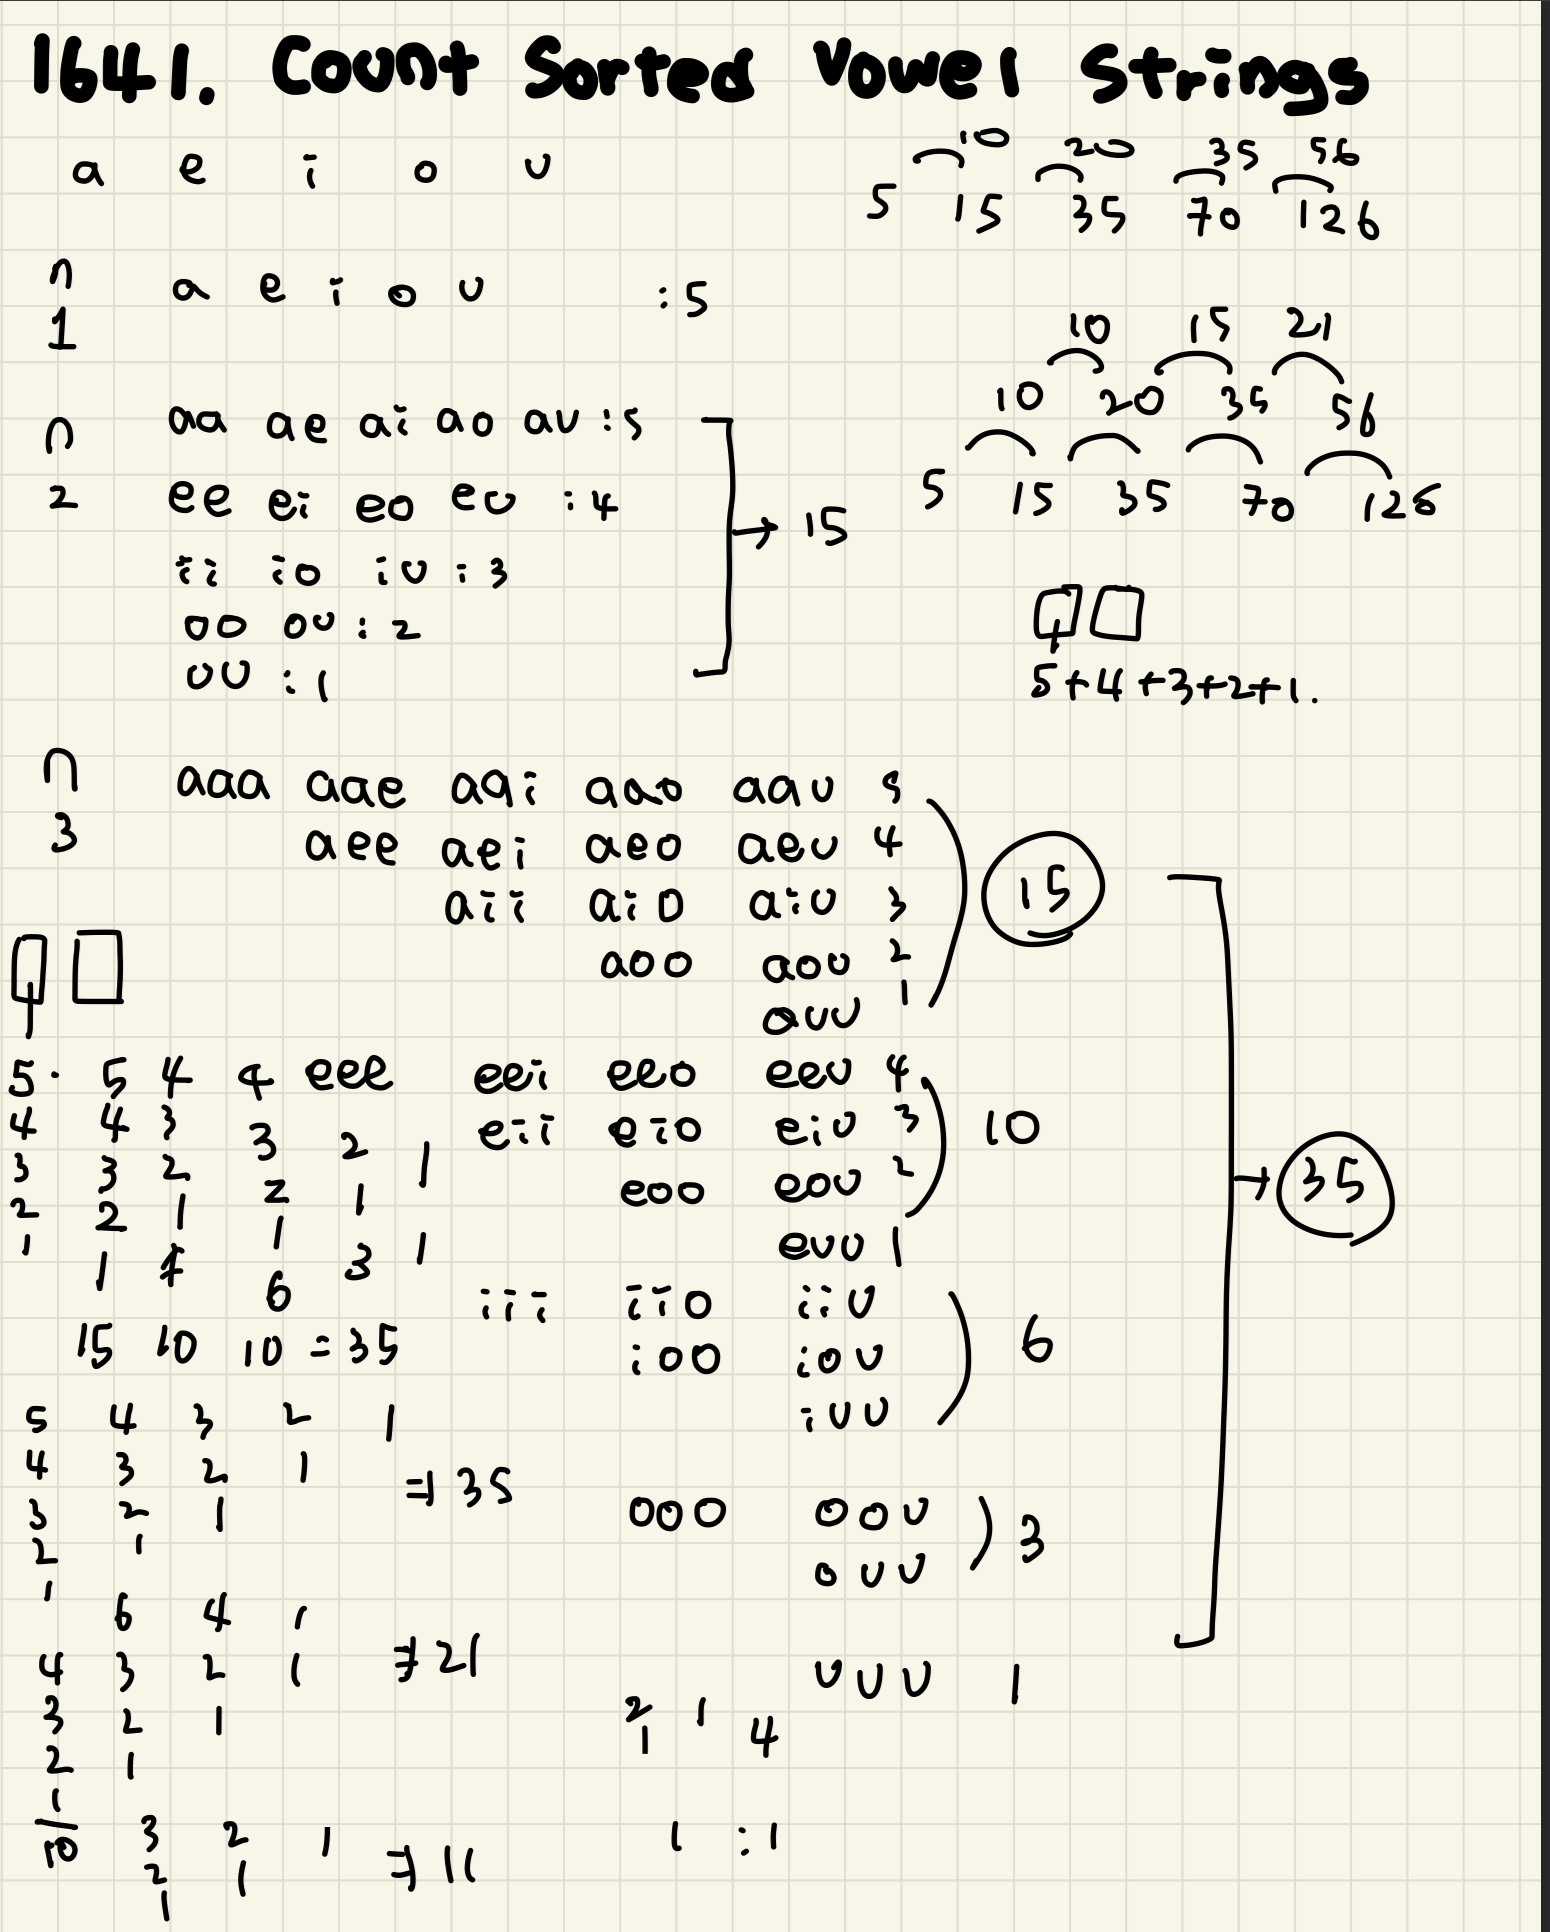 1641. Count Sorted Vowel Strings
a e i o u
10 20 35 56
5 15 35 70 126
n
1
a e i o u :5
10 15 21
10 20 35 56
5 15 35 70 126
n
2
aa ae ai ao au :5
ee ei eo eu :4
ii io iu :3
oo ou :2
uu :1
→ 15
5+4+3+2+1.
n
3
aaa aae aai aao aau 5
aee aei aeo aeu 4
aii aio aiu 3
aoo aou 2
auu 1
15
eee eei eeo eeu 4
eii eio eiu 3
eoo eou 2
euu 1
10
iii iio iiu
ioo iou
iuu
6
ooo oou
ouu
3
uuu 1
→ 35
5. 5 4 4
4 4 3 3 2 1
3 3 2 2 1
2 2 1 1 3 1
1 1 6
15 10 10 = 35
5 4 3 2 1
4 3 2 1
3 2 1
2 1
1
⇒ 35
6 4 1
4 3 2 1 ⇒ 21
3 2 1
2 1
1
10
2 1 4
1
3 2 1
2 1
1
⇒ 11
1 :1